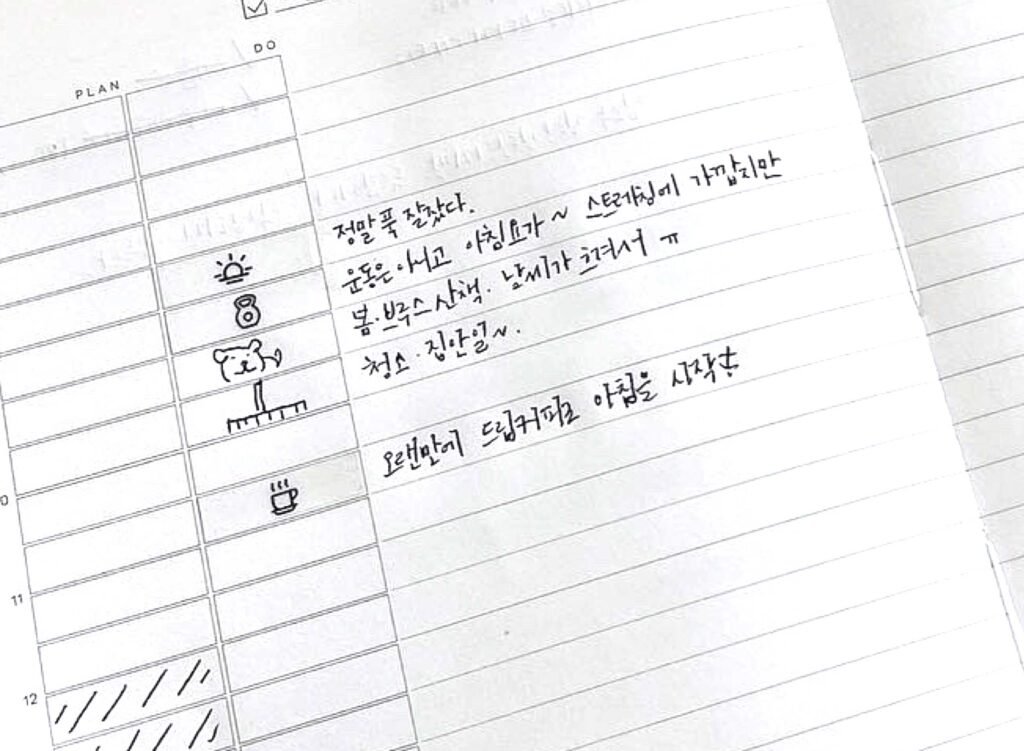 DO
PLAN
정말 푹 잘잤다.
운동은 아니고 아침요가 ~ 스트레칭에 가깝지만
봄·브루스 산책. 날씨가 흐려서 ㅠ
청소·집안일~.
오랜만에 드립커피로 아침을 시작
0
11
12